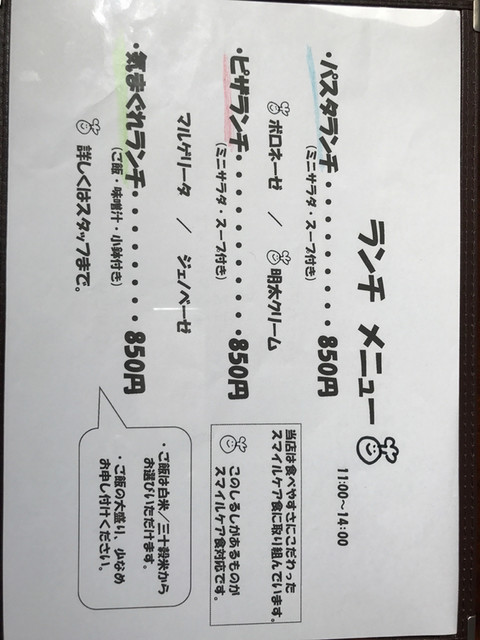 ランチ メニュー
11:00～14:00
・パスタランチ・・・・・・・・・850円
(ミニサラダ・スープ付き)
ボロネーゼ / 明水クリーム
・ピザランチ・・・・・・・・・・850円
(ミニサラダ・スープ付き)
マルゲリータ / ジェノベーゼ
・気まぐれランチ・・・・・・・・850円
(ご飯・味噌汁・小鉢付き)
詳しくはスタッフまで。
当店は食べやすさにこだわった
スマイルケア食に取り組んでいます。
このしるしがあるものが
スマイルケア食対応です。
・ご飯は白米／三十穀米から
お選びいただけます。
・ご飯の大盛り、少なめ
お申し付けください。